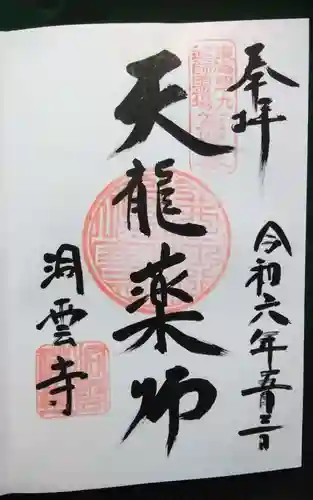 奉拝
令和六年五月三日
天龍薬師
洞雲寺